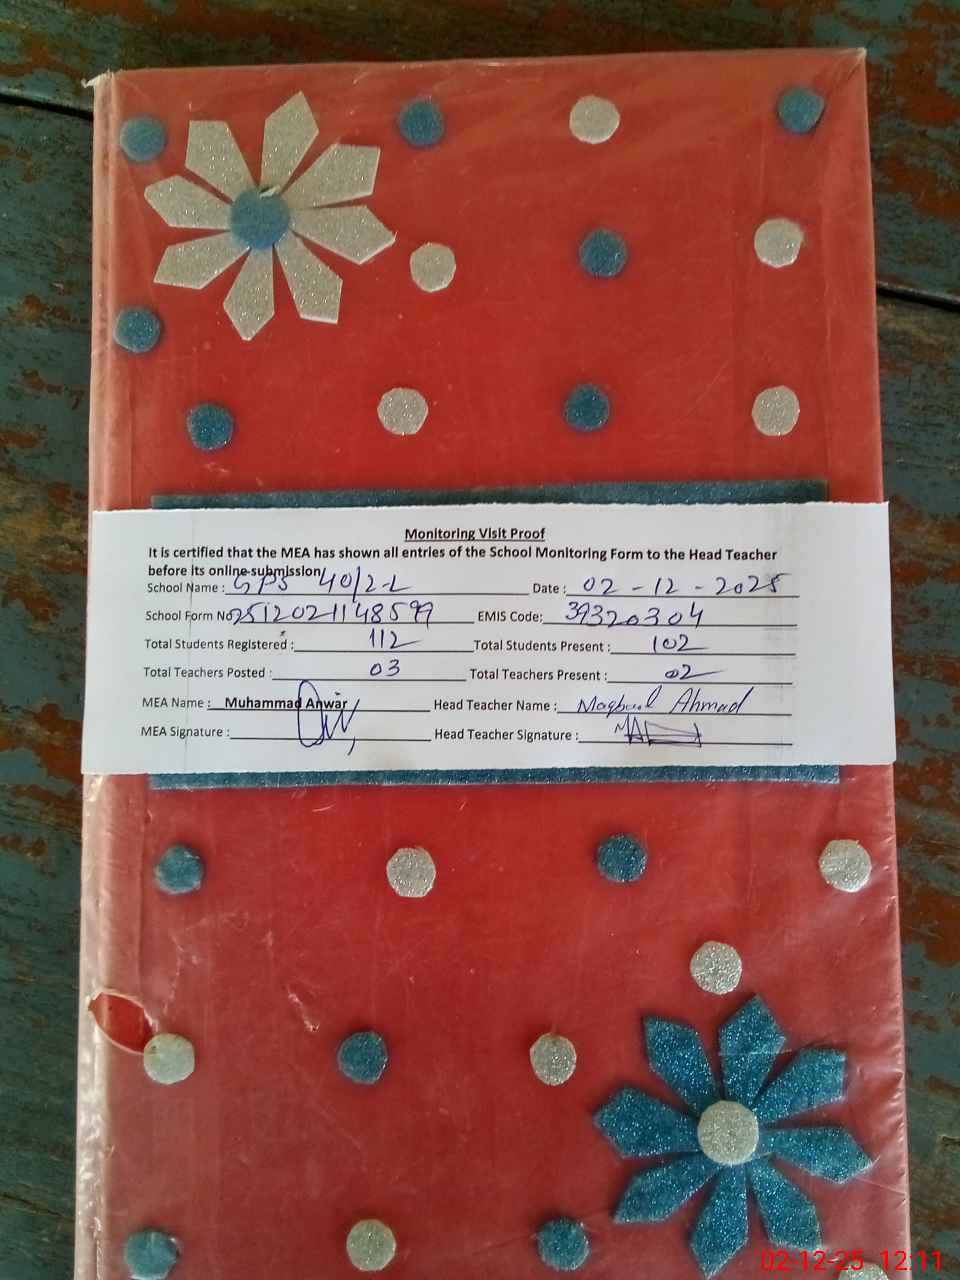 Monitoring Visit Proof
It is certified that the MEA has shown all entries of the School Monitoring Form to the Head Teacher
before its online submission
School Name : GPS 40/2-L Date : 02 - 12 - 2025
School Form No 2512021148599 EMIS Code: 39320304
Total Students Registered : 112 Total Students Present : 102
Total Teachers Posted : 03 Total Teachers Present : 02
MEA Name : Muhammad Anwar Head Teacher Name : Maqbool Ahmad
MEA Signature : Head Teacher Signature :
02-12-25 12:11